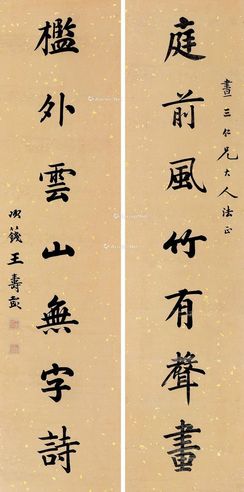 畫三仁兄大人法正
庭前風竹有聲畫
檻外雲山無字詩
次籛王壽彭